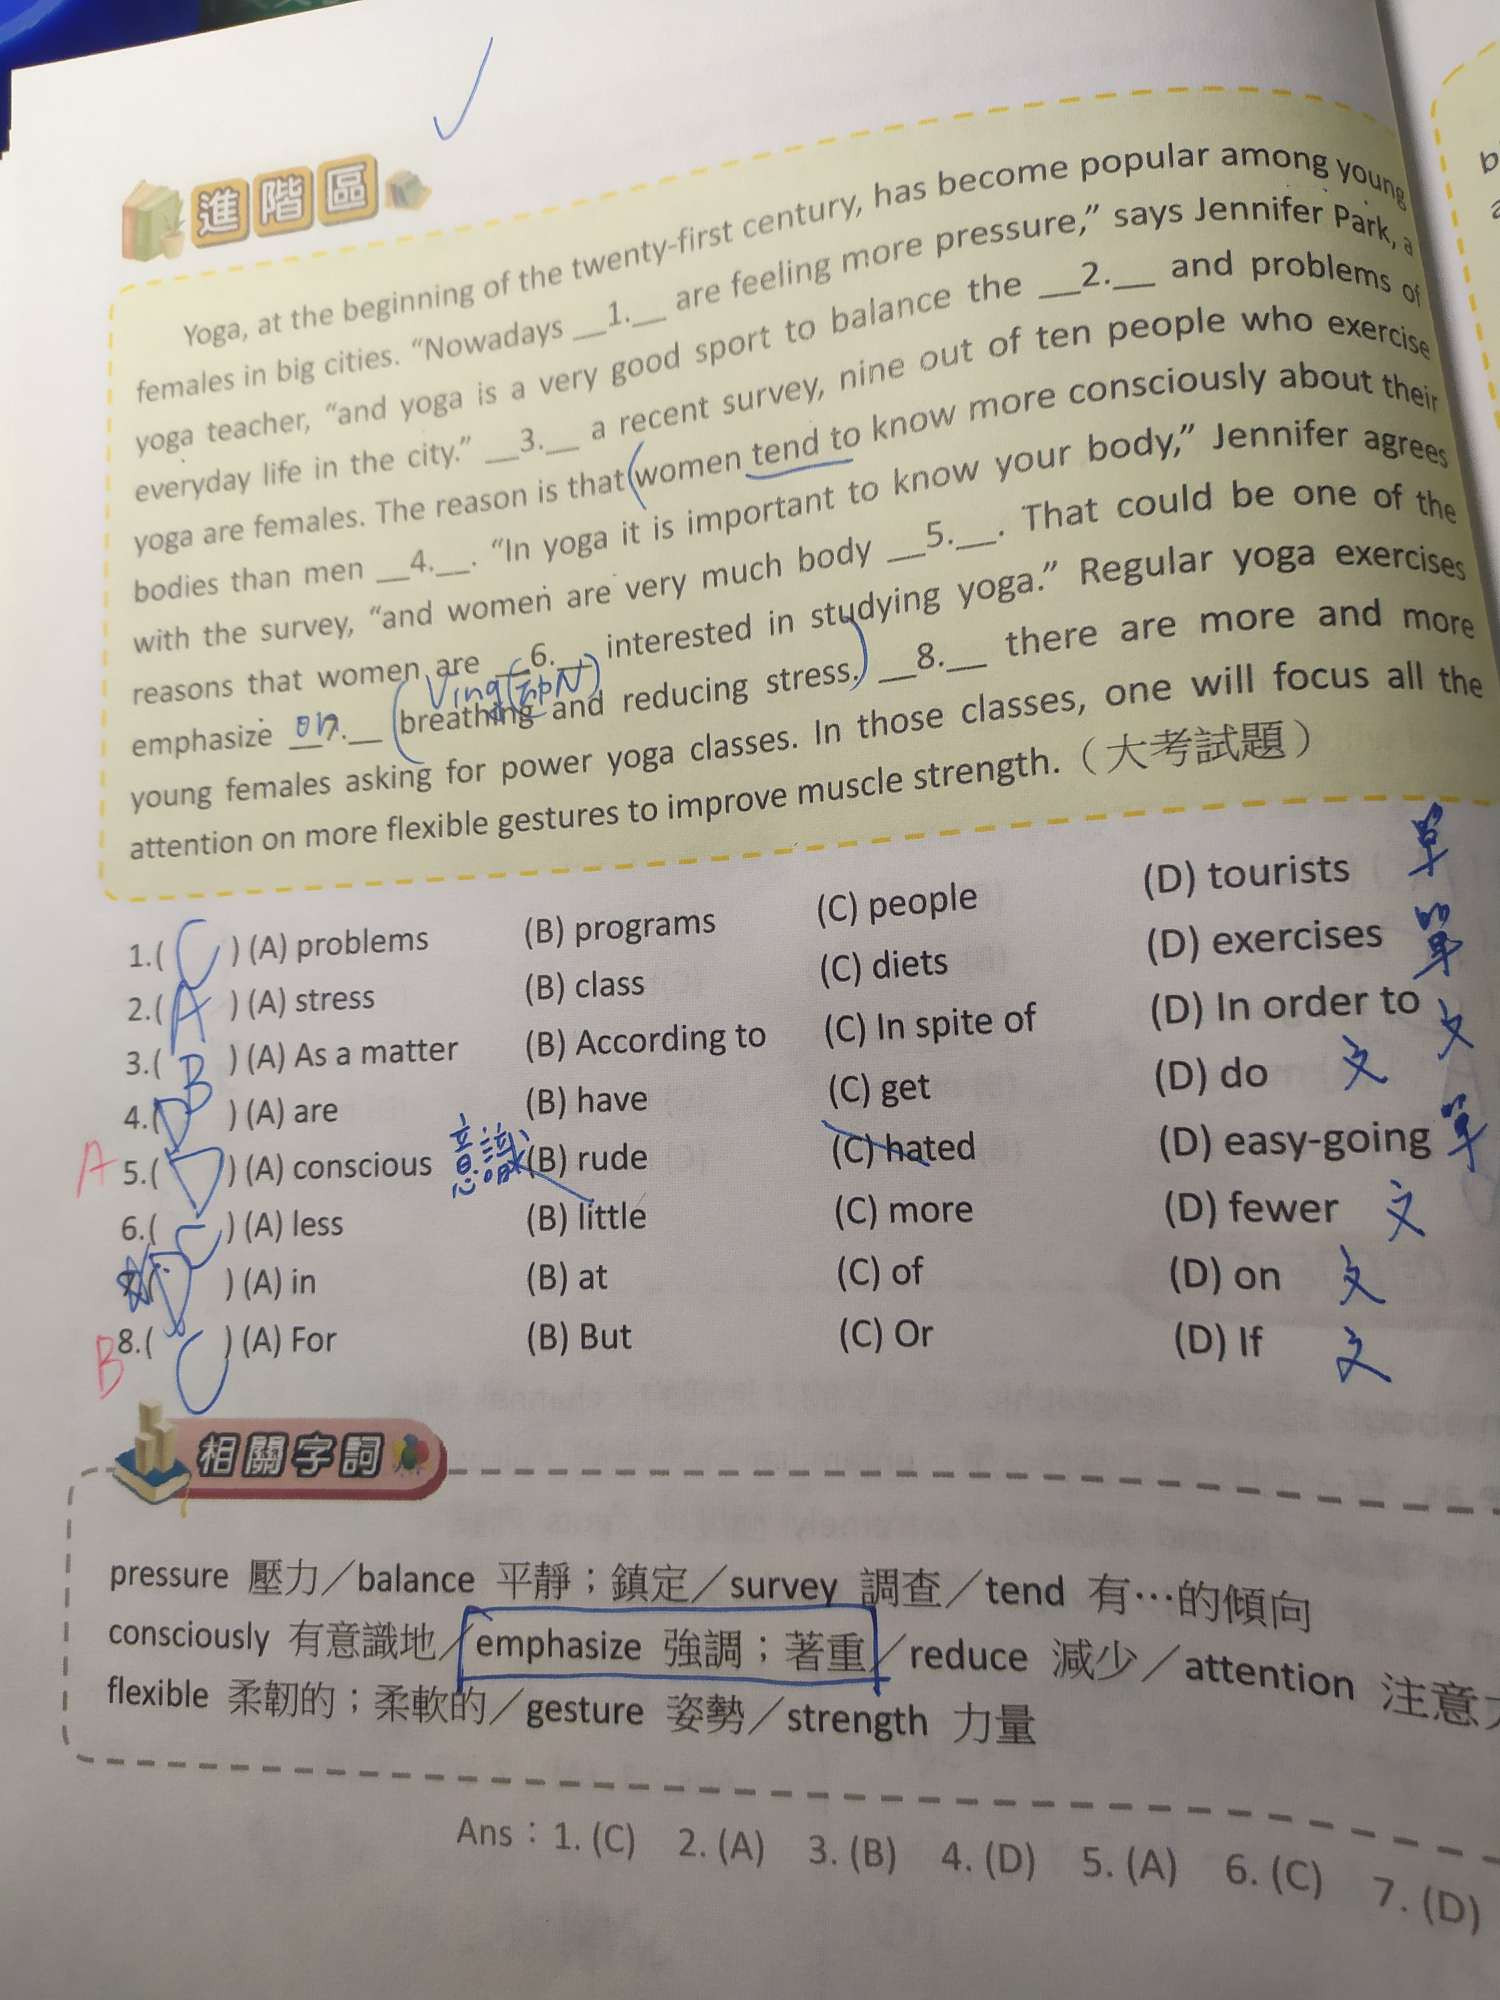 進階區
Yoga, at the beginning of the twenty-first century, has become popular among young
females in big cities. “Nowadays __1.__ are feeling more pressure,” says Jennifer Park, a
yoga teacher, “and yoga is a very good sport to balance the __2.__ and problems of
everyday life in the city.” __3.__ a recent survey, nine out of ten people who exercise
yoga are females. The reason is that women tend to know more consciously about their
bodies than men __4.__. “In yoga it is important to know your body,” Jennifer agrees
with the survey, “and women are very much body __5.__. That could be one of the
reasons that women are __6.__ interested in studying yoga.” Regular yoga exercises
Ving(即N)
emphasize __7.__ breathing and reducing stress. __8.__ there are more and more
on
young females asking for power yoga classes. In those classes, one will focus all the
attention on more flexible gestures to improve muscle strength.（大考試題）
1.( C ) (A) problems (B) programs (C) people (D) tourists 單
2.( A ) (A) stress (B) class (C) diets (D) exercises 單
3.( B ) (A) As a matter (B) According to (C) In spite of (D) In order to 文
4.( D ) (A) are (B) have (C) get (D) do 文
A 5.( D ) (A) conscious 意識 (B) rude (C) hated (D) easy-going 單
6.( C ) (A) less (B) little (C) more (D) fewer 文
( D ) (A) in (B) at (C) of (D) on 文
B 8.( C ) (A) For (B) But (C) Or (D) If 文
相關字詞
pressure 壓力／balance 平靜；鎮定／survey 調查／tend 有…的傾向
consciously 有意識地／emphasize 強調；著重／reduce 減少／attention 注意
flexible 柔韌的；柔軟的／gesture 姿勢／strength 力量
Ans：1. (C) 2. (A) 3. (B) 4. (D) 5. (A) 6. (C) 7. (D)